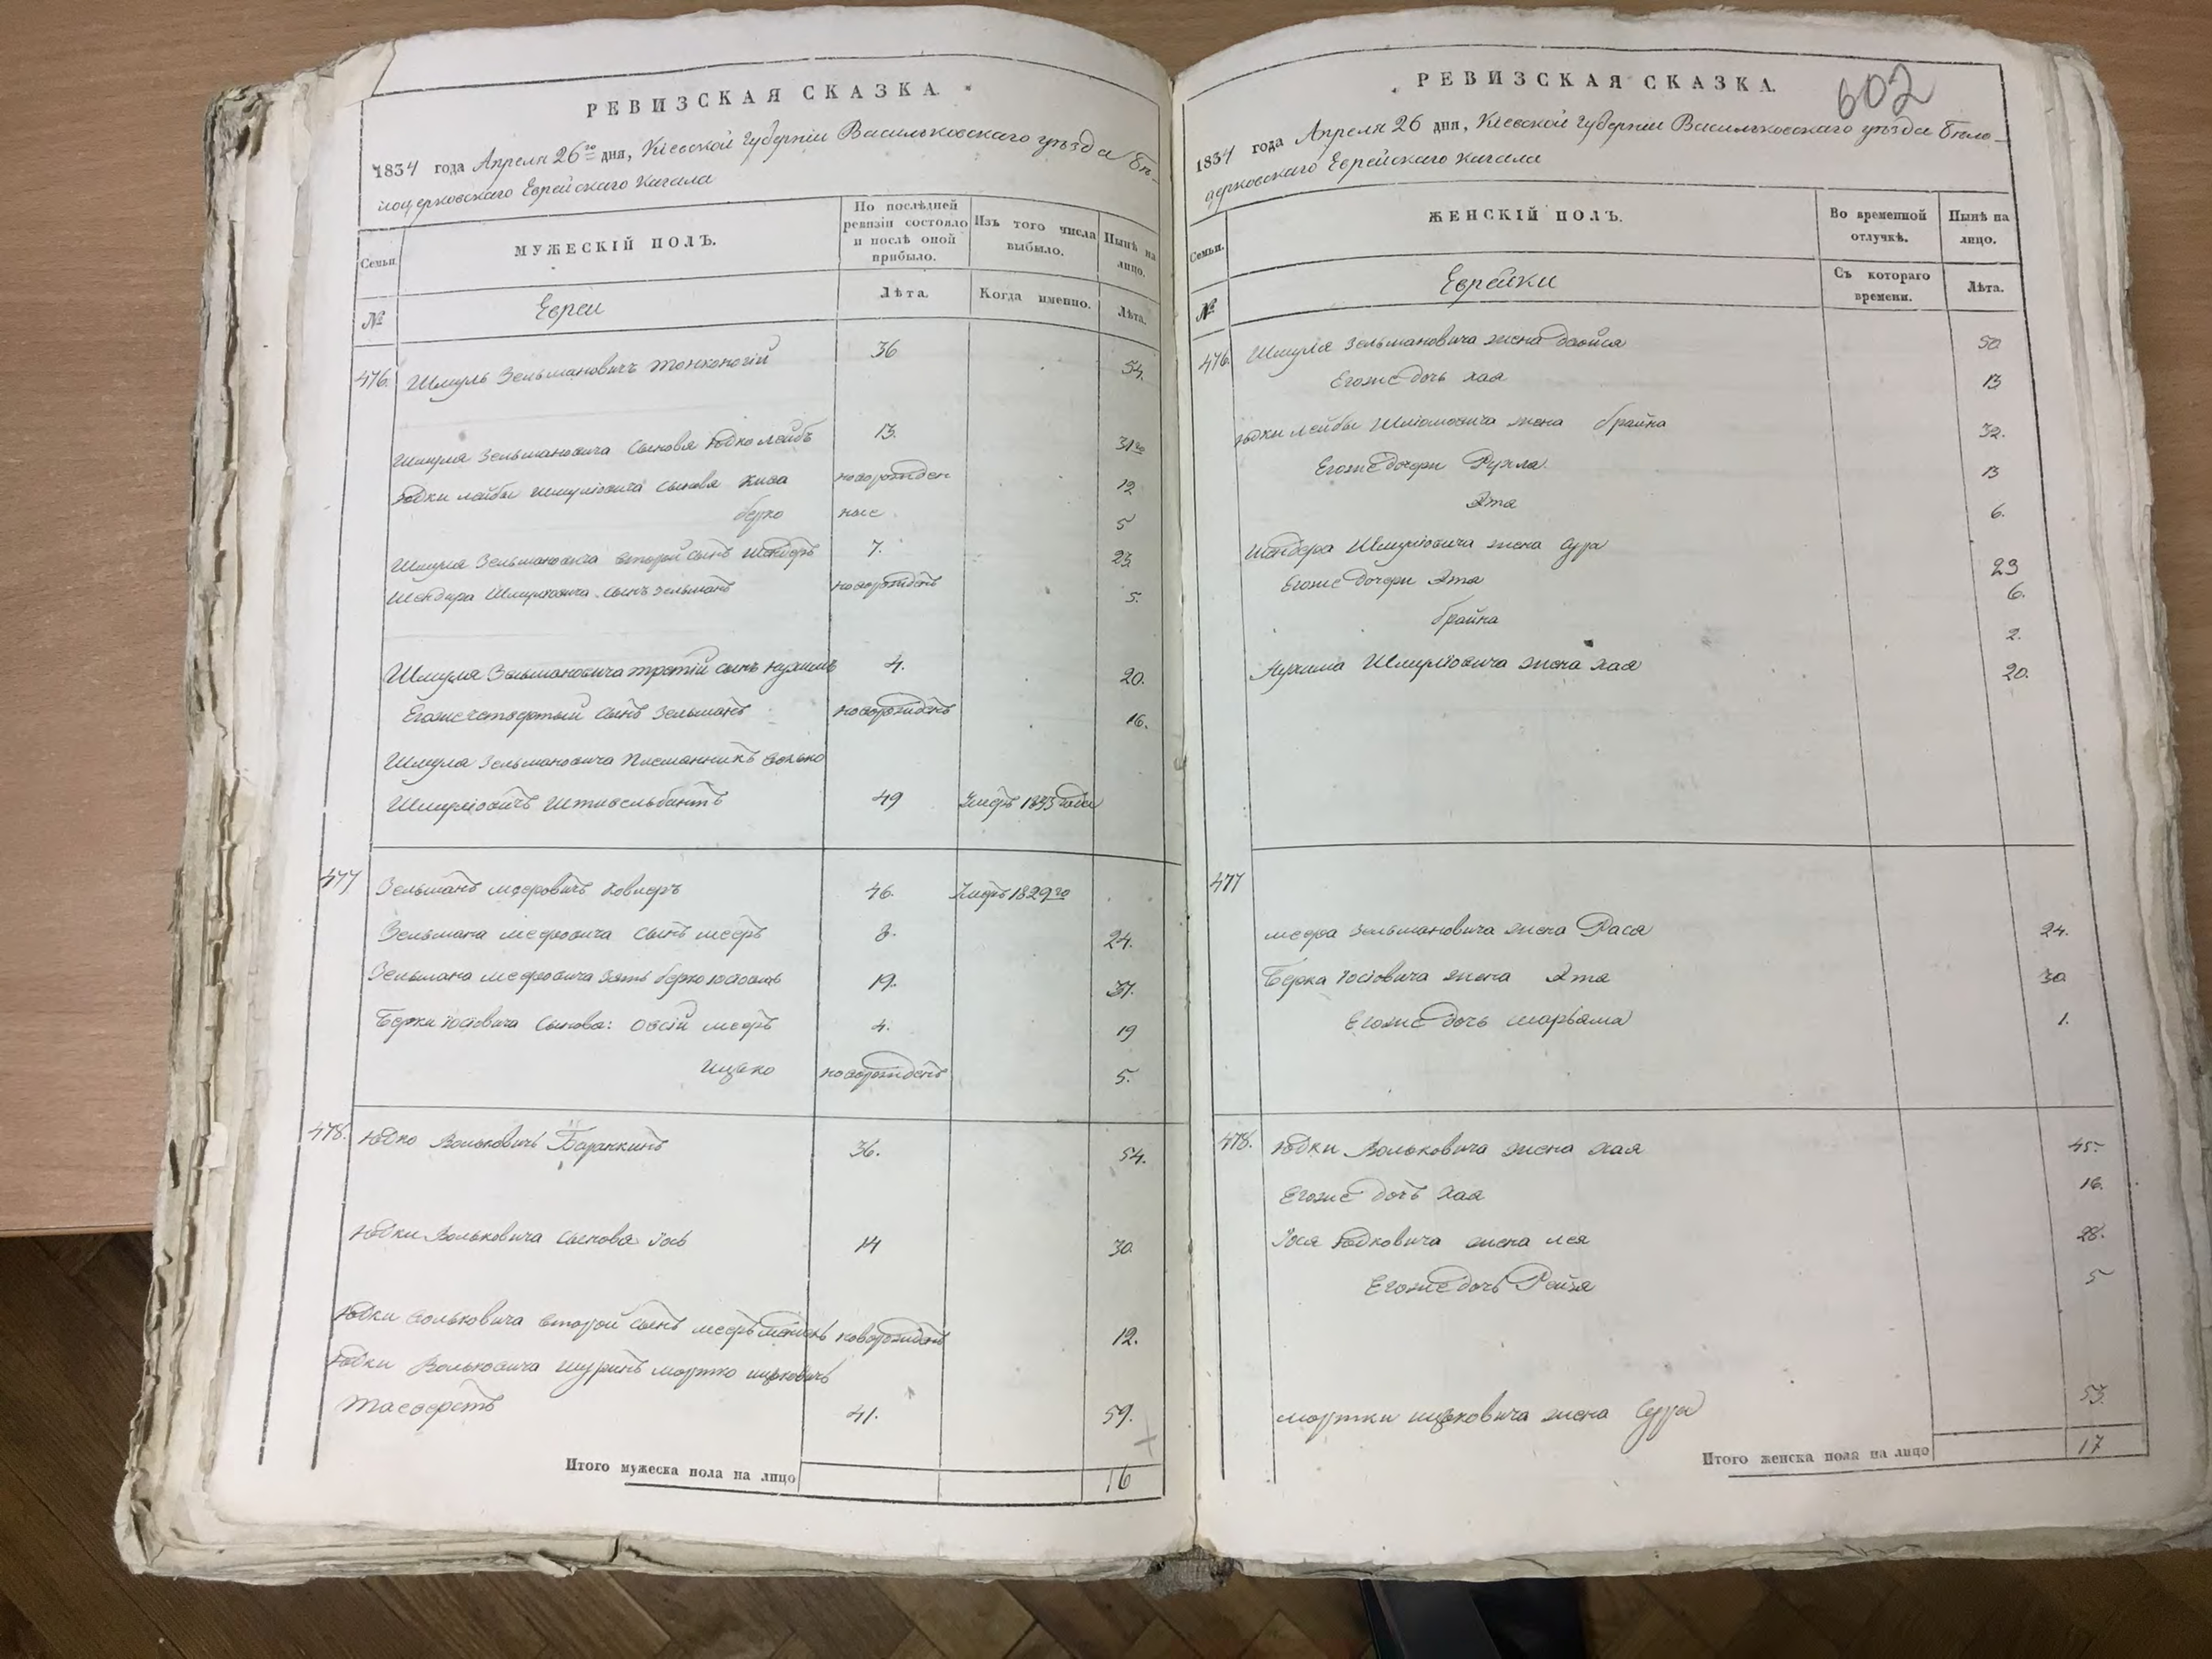 РЕВИЗСКАЯ СКАЗКА.
1834 года Апреля 26го дня, Кіевской Губерніи Васильковскаго уѣзда Бѣ-
лоцерковскаго Еврейскаго Кагала
Семьи.
МУЖЕСКІЙ ПОЛЪ.
По послѣдней ревизіи состояло и послѣ оной прибыло.
Изъ того числа выбыло.
Нынѣ на лицо.
№
Евреи
Лѣта.
Когда именно.
Лѣта.
476. Шмуль Зельмановичъ Тонконогій 36 54.
Шмуля Зельмановича сыновя Юдко Лейбъ 13. 31го
Юдки Лейбы Шмуліовича сыновя новорожден 12
берко ные 5
Шмуля Зельмановича второй сынъ Шендеръ 7. 23
Шендера Шмуліовича сынъ Зельманъ новорожденъ 5.
Шмуля Зельмановича третій сынъ Нухимъ 4. 20.
Егоже четвертый сынъ Зельманъ новорожденъ 16.
Шмуля Зельмановича Волько
Шмуліовичъ 49 Умеръ 1833 года
477 Зельманъ Меєровичъ 46. Умеръ 1829го
Зельмана Меєровича сынъ Меєръ 24.
Зельмана Меєровича зять берко Іосіовичъ 19. 37.
Берки Іосіовича сыновя: Овсій Меєръ 4. 19
Ицько новорожденъ 5.
478. Юдко Вольковичъ Баранкинъ 36. 54.
Юдки Вольковича сыновя Іось 14 30.
Юдки Вольковича второй сынъ Меєръ новорожденъ 12.
Юдки Вольковича шуринъ Мортко Ицьковичъ
41. 59.
Итого мужеска пола на лицо 16
РЕВИЗСКАЯ СКАЗКА.
602
1834 года Апреля 26 дня, Кіевской Губерніи Васильковскаго уѣзда Бѣло-
церковскаго Еврейскаго Кагала
Семьи.
ЖЕНСКІЙ ПОЛЪ.
Во временной отлучкѣ.
Нынѣ на лицо.
№
Еврейки
Съ котораго времени.
Лѣта.
476. Шмуля Зельмановича жена 50
Егоже дочь Хая 13
Юдки Лейбы Шмуліовича жена брайна 32.
Егоже дочери Рухля 13
Эта 6.
Шендера Шмуліовича жена Сура 23
Егоже дочери Эта 6.
брайна 2.
Нухима Шмуліовича жена Хая 20.
477
Меєра Зельмановича жена Рася 24.
Берка Іосіовича жена Эта 30
Егоже дочь Марьяма 1.
478. Юдки Вольковича жена Хая 45.
Егоже дочь Хая 16.
Іося Юдковича жена Лея 28.
Егоже дочь Рейзя 5
Мортки Ицьковича жена Сура 53.
Итого женска пола на лицо 17